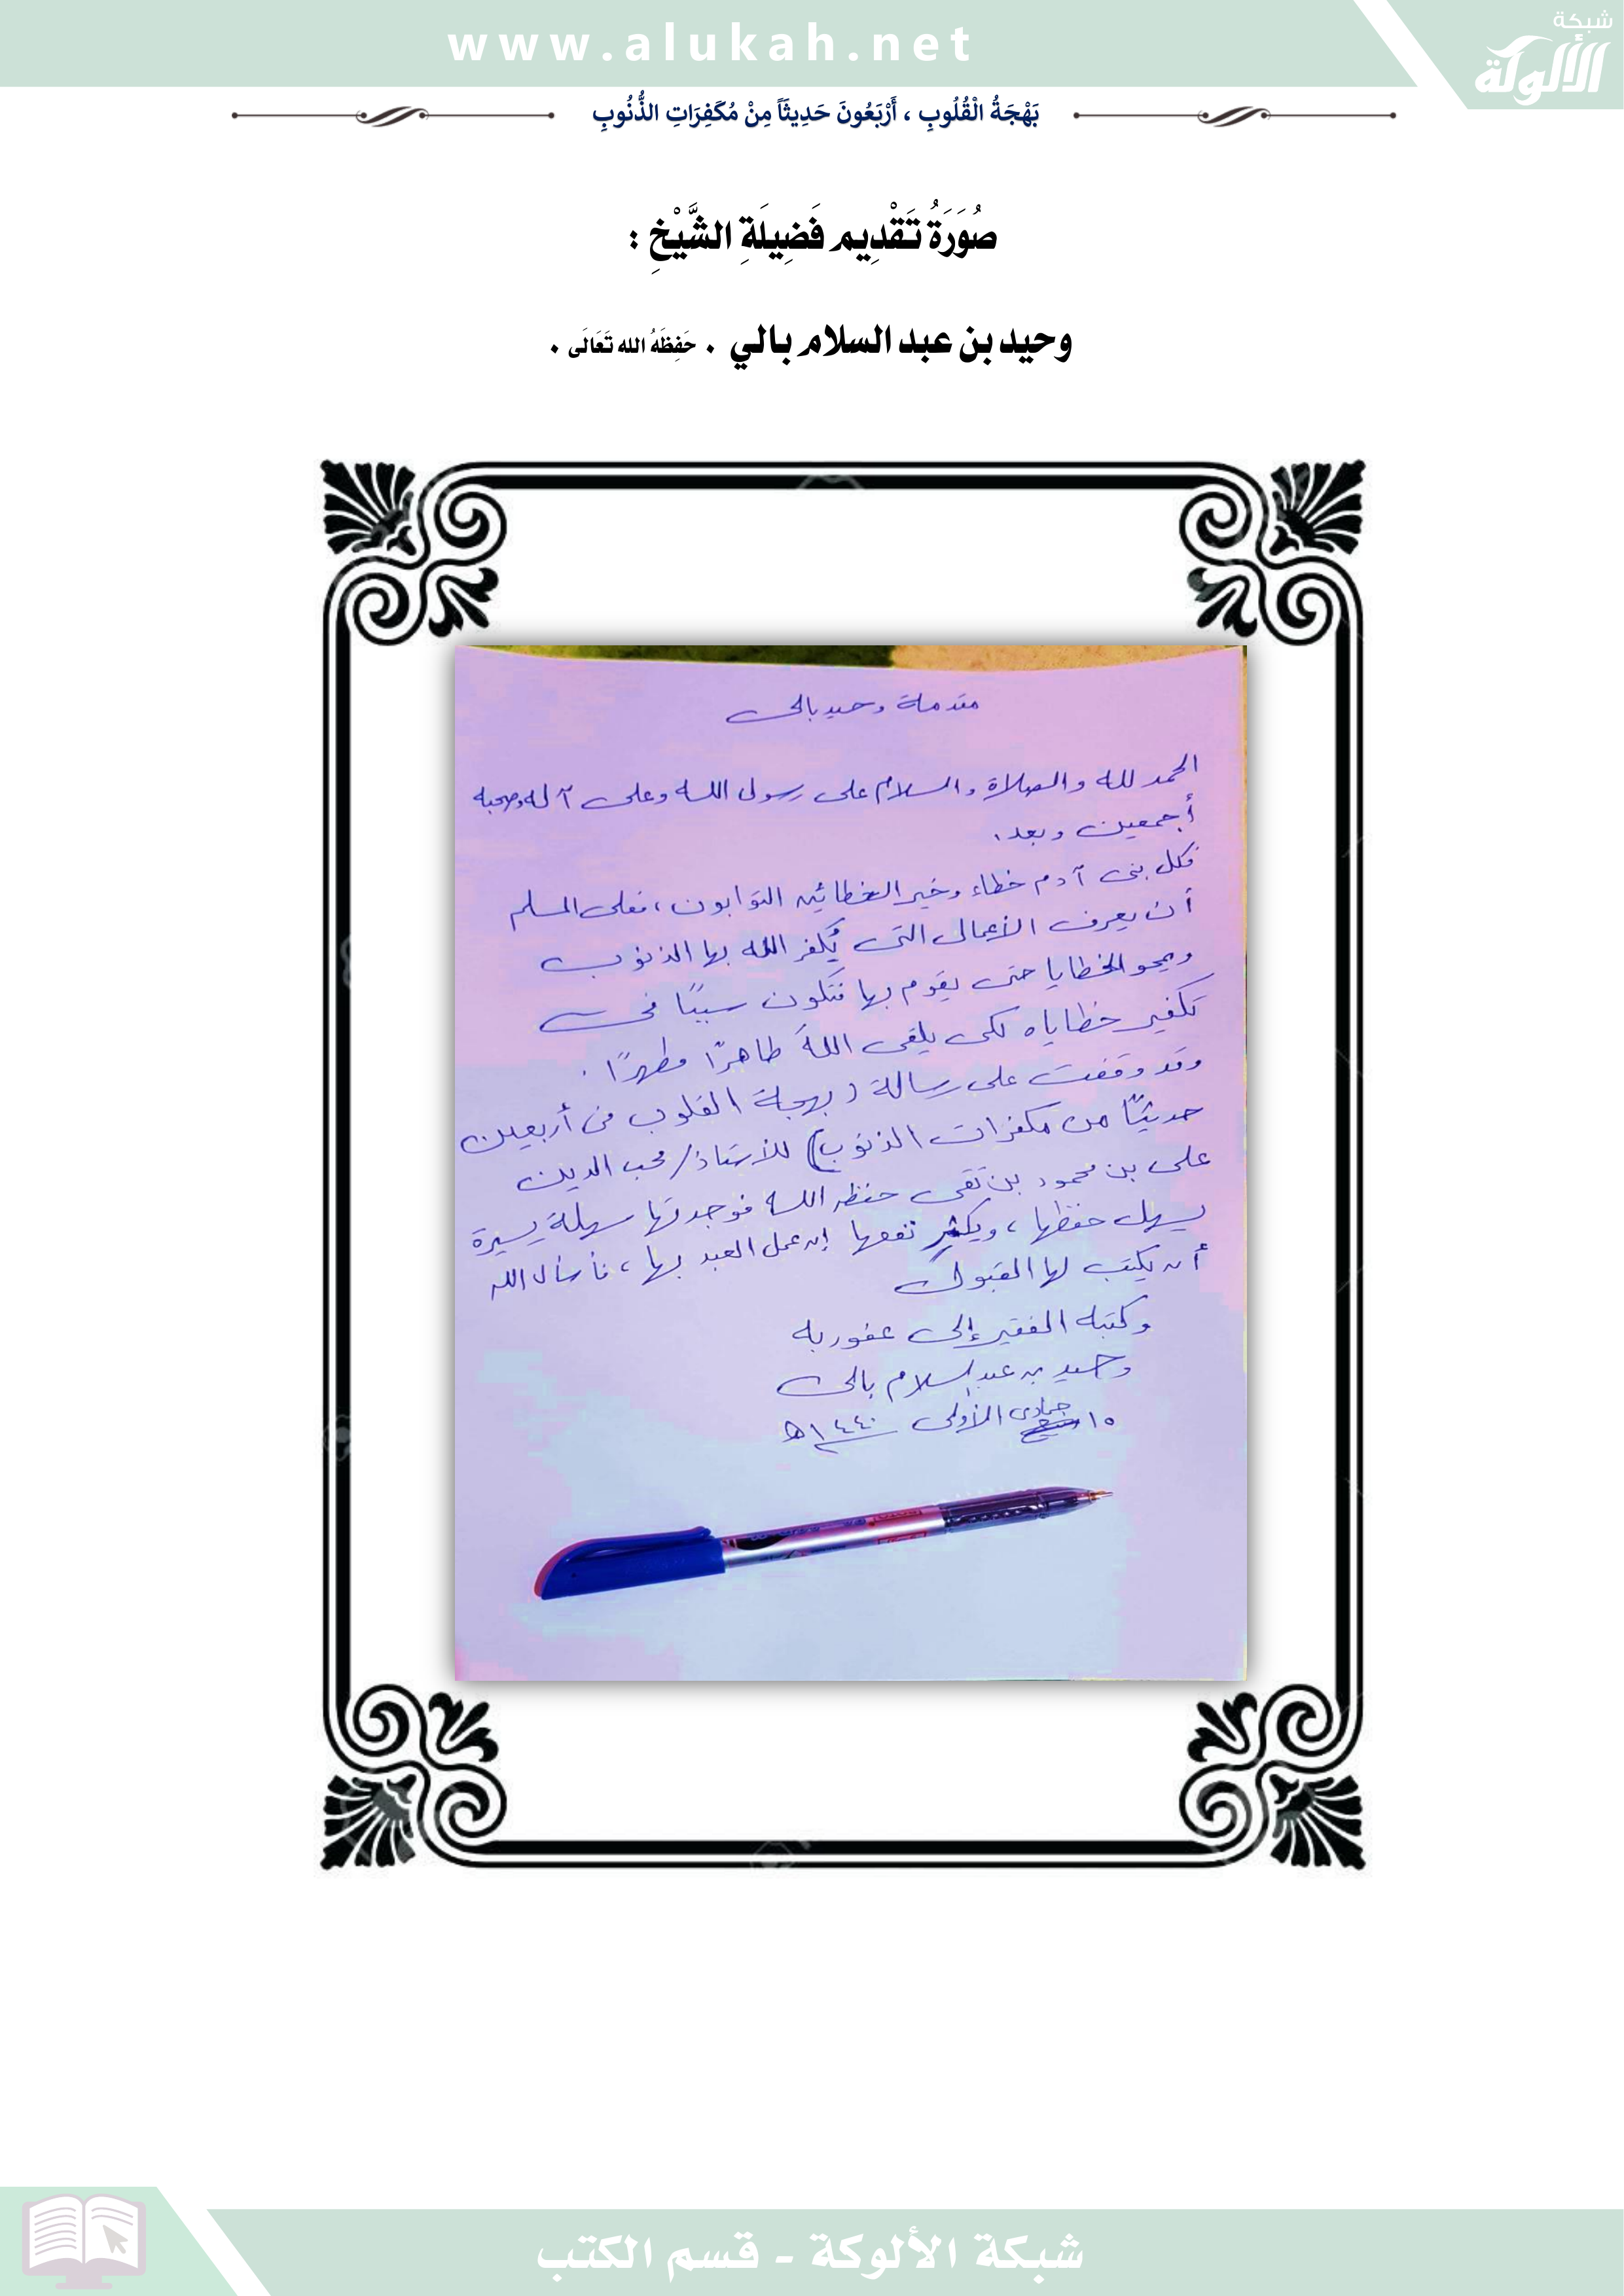 www.alukah.net
شبكة
الألولة
بَهْجَةُ الْقُلُوبِ ، أَرْبَعُونَ حَدِيثَاً مِنْ مُكَفِرَاتِ الذُّنُوبِ
صُوَرَةُ تَقْدِيم فَضِيلَةِ الشَّيْخِ :
وحيد بن عبد السلام بالي . حَفِظَهُ الله تَعَالَى .
مقدمة وحيد بالى
الحمد لله والصلاة والسلام على رسول الله وعلى آله وصحبه
أجمعين وبعد.
فكل بنى آدم خطاء وخير الخطائين التوابون، فعلى المسلم
أن يعرف الأعمال التى يُكفر الله بها الذنوب
ويمحو الخطايا حتى يقوم بها فتكون سببًا فى
تكفير خطاياه لكى يلقى اللهَ طاهرًا مطهرًا .
وقد وقفت على رسالة (بهجة القلوب فى أربعين
حديثًا من مكفرات الذنوب) للأستاذ/ محب الدين
على بن محمود بن تقى حفظه الله فوجدتها سهلة يسيرة
يسهل حفظها ، ويكثر نفعها إن عمل العبد بها ، فأسأل الله
أن يكتب لها القبول
وكتبه الفقير إلى عفو ربه
وحيد بن عبد السلام بالى
١٥ جمادى الأولى ١٤٤٠ هـ
شبكة الألوكة - قسم الكتب